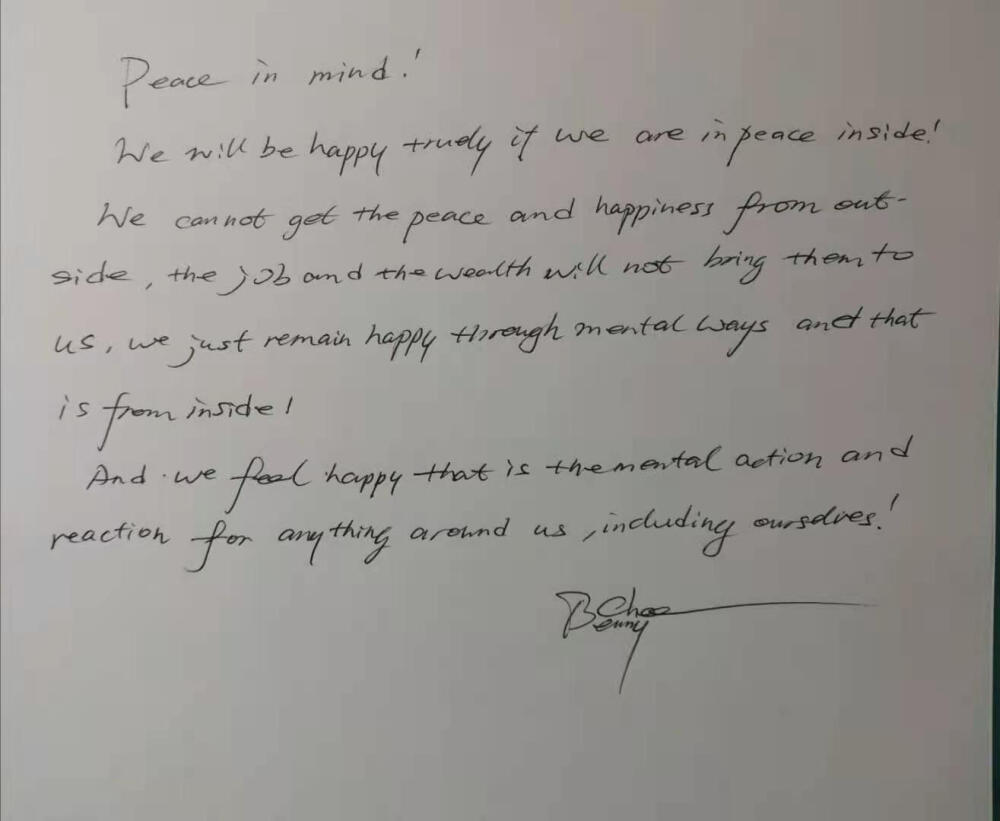 Peace in mind!
We will be happy truely if we are in peace inside!
We cannot get the peace and happiness from out-
side, the job and the wealth will not bring them to
us, we just remain happy through mental ways and that
is from inside!
And we feel happy that is the mental action and
reaction for anything around us, including ourselves!
Benny